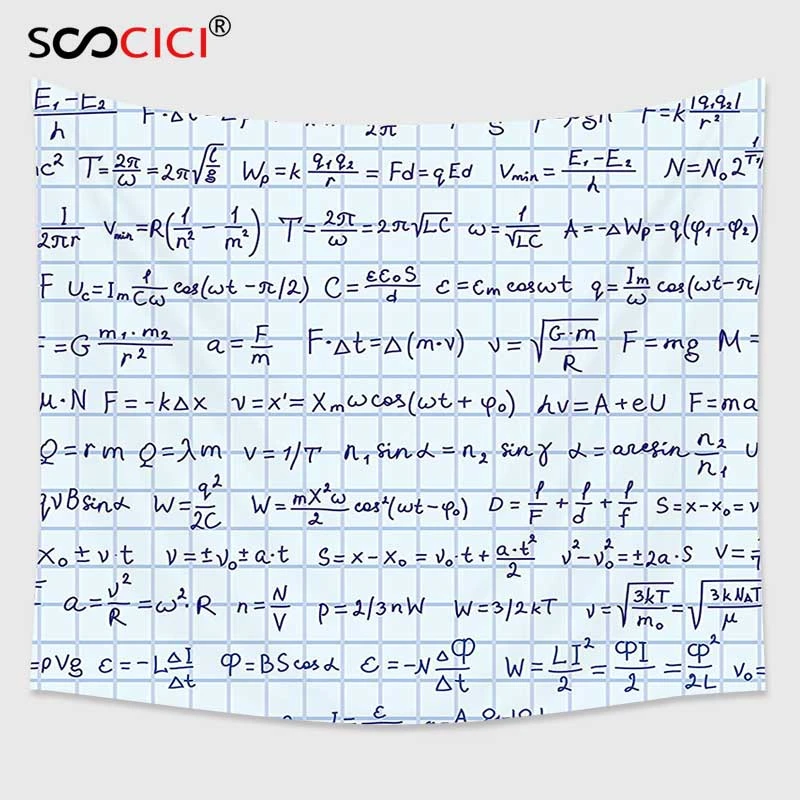 SOOCICI®
E₁-E₂/h F=k |q₁q₂|/r²
c² T=2π/ω=2π√(ℓ/g) Wₚ=k q₁q₂/r = Fd=qEd Vmin = E₁-E₂/h N=N₀2
I/2πr Vmin=R(1/n² - 1/m²) T=2π/ω=2π√LC ω=1/√LC A=-ΔWₚ=q(φ₁-φ₂)
F Uc=Im 1/Cω cos(ωt-π/2) C=εε₀S/d ε=εm cosωt q=Im/ω cos(ωt-π/
=G m₁·m₂/r² a=F/m F·Δt=Δ(m·v) v=√(G·m/R) F=mg M=
μ·N F=-kΔx v=x'=Xmωcos(ωt+φ₀) hv=A+eU F=ma
Q=rm Q=λm ν=1/T n₁ sinα=n₂ sinγ α=arcsin n₂/n₁ U
qvBsinα W=q²/2C W=mX²ω/2 cos²(ωt-φ₀) D=1/F+1/d+1/f S=x-x₀=v
X₀±v·t v=±v₀±a·t S=x-x₀=v₀·t+a·t²/2 v²-v₀²=±2a·S V=
a=v²/R=ω²·R n=N/V p=2/3nW W=3/2kT v=√(3kT/m₀)=√(3kNAT/μ)
=ρVg ε=-LΔI/Δt Φ=BScosα ε=-NΔΦ/Δt W=LI²/2=ΦI/2=Φ²/2L v₀=